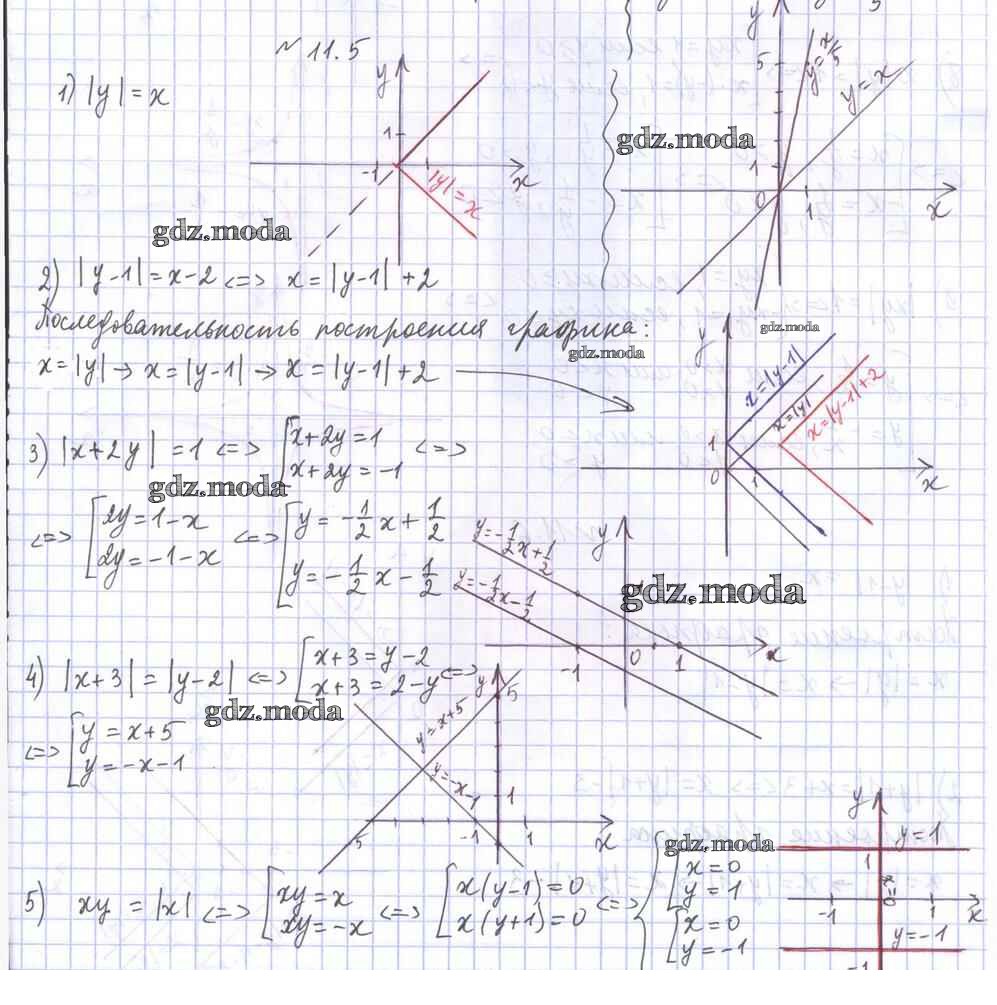 № 11.5
1) |y| = x
y
1
-1
x
|y| = x
y
5
y = x
1
0
1
x
gdz.moda
gdz.moda
2) |y-1| = x-2 <=> x = |y-1| + 2
Последовательность построения графика:
gdz.moda
gdz.moda
x = |y| → x = |y-1| → x = |y-1| + 2
y
x = |y-1|
x = |y|
x = |y-1| + 2
1
0
1
x
3) |x+2y| = 1 <=> [ x+2y = 1
x+2y = -1 <=>
gdz.moda
<=> [ 2y = 1-x
2y = -1-x
<=> [ y = -1/2 x + 1/2
y = -1/2 x - 1/2
y
y = -1/2 x + 1/2
y = -1/2 x - 1/2
gdz.moda
-1
0
1
x
4) |x+3| = |y-2| <=> [ x+3 = y-2
x+3 = 2-y <=>
gdz.moda
<=> [ y = x+5
y = -x-1
y
5
y = x+5
y = -x-1
1
-5
-1
1
x
5) xy = |x| <=> [ xy = x
xy = -x
<=> [ x(y-1) = 0
x(y+1) = 0
<=>
gdz.moda
{ [ x = 0
y = 1
[ x = 0
y = -1
y
y = 1
1
x = 0
-1
1
x
y = -1
-1